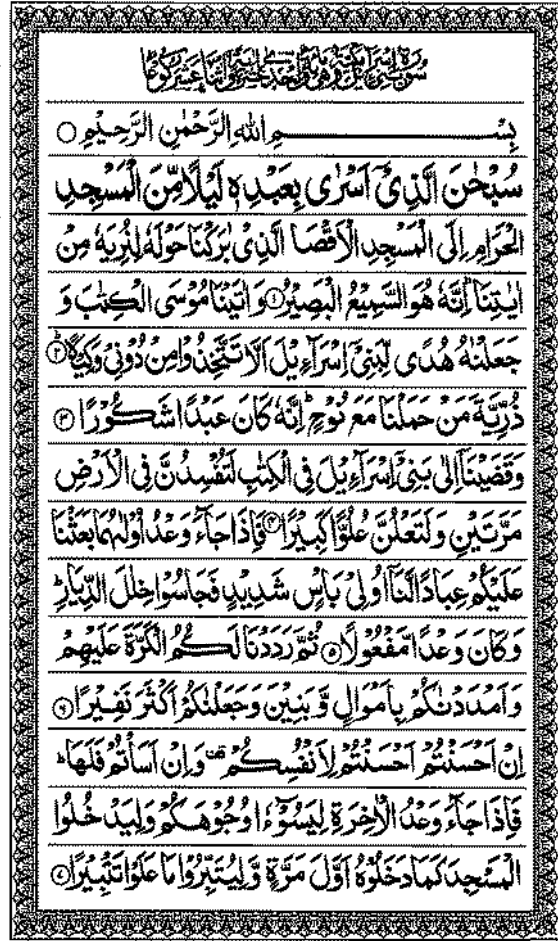 سُوْرَةُ بَنِيْٓ اِسْرَآءِيْلَ مَكِّيَّةٌ وَّهِيَ مِائَةٌ وَّاِحْدٰى عَشْرَةَ اٰيَةً وَّاثْنَا عَشَرَ رُكُوْعًا
بِسْمِ اللهِ الرَّحْمٰنِ الرَّحِيْمِ ○
سُبْحٰنَ الَّذِيْٓ اَسْرٰى بِعَبْدِهٖ لَيْلًا مِّنَ الْمَسْجِدِ
الْحَرَامِ اِلَى الْمَسْجِدِ الْاَقْصَا الَّذِيْ بٰرَكْنَا حَوْلَهٗ لِنُرِيَهٗ مِنْ
اٰيٰتِنَا ؕ اِنَّهٗ هُوَ السَّمِيْعُ الْبَصِيْرُ ۝۱ وَ اٰتَيْنَا مُوْسَى الْكِتٰبَ وَ
جَعَلْنٰهُ هُدًى لِّبَنِيْٓ اِسْرَآءِيْلَ اَلَّا تَتَّخِذُوْا مِنْ دُوْنِيْ وَكِيْلًا ۝۲ؕ
ذُرِّيَّةَ مَنْ حَمَلْنَا مَعَ نُوْحٍ ؕ اِنَّهٗ كَانَ عَبْدًا شَكُوْرًا ۝۳
وَقَضَيْنَآ اِلٰى بَنِيْٓ اِسْرَآءِيْلَ فِي الْكِتٰبِ لَتُفْسِدُنَّ فِي الْاَرْضِ
مَرَّتَيْنِ وَلَتَعْلُنَّ عُلُوًّا كَبِيْرًا ۝۴ فَاِذَا جَآءَ وَعْدُ اُوْلٰىهُمَا بَعَثْنَا
عَلَيْكُمْ عِبَادًا لَّنَآ اُولِيْ بَاْسٍ شَدِيْدٍ فَجَاسُوْا خِلٰلَ الدِّيَارِ ؕ
وَكَانَ وَعْدًا مَّفْعُوْلًا ۝۵ ثُمَّ رَدَدْنَا لَكُمُ الْكَرَّةَ عَلَيْهِمْ
وَاَمْدَدْنٰكُمْ بِاَمْوَالٍ وَّبَنِيْنَ وَجَعَلْنٰكُمْ اَكْثَرَ نَفِيْرًا ۝۶
اِنْ اَحْسَنْتُمْ اَحْسَنْتُمْ لِاَنْفُسِكُمْ ۫ وَاِنْ اَسَاْتُمْ فَلَهَا ؕ
فَاِذَا جَآءَ وَعْدُ الْاٰخِرَةِ لِيَسُوْٓءٗا وُجُوْهَكُمْ وَلِيَدْخُلُوا
الْمَسْجِدَ كَمَا دَخَلُوْهُ اَوَّلَ مَرَّةٍ وَّلِيُتَبِّرُوْا مَا عَلَوْا تَتْبِيْرًا ۝۷